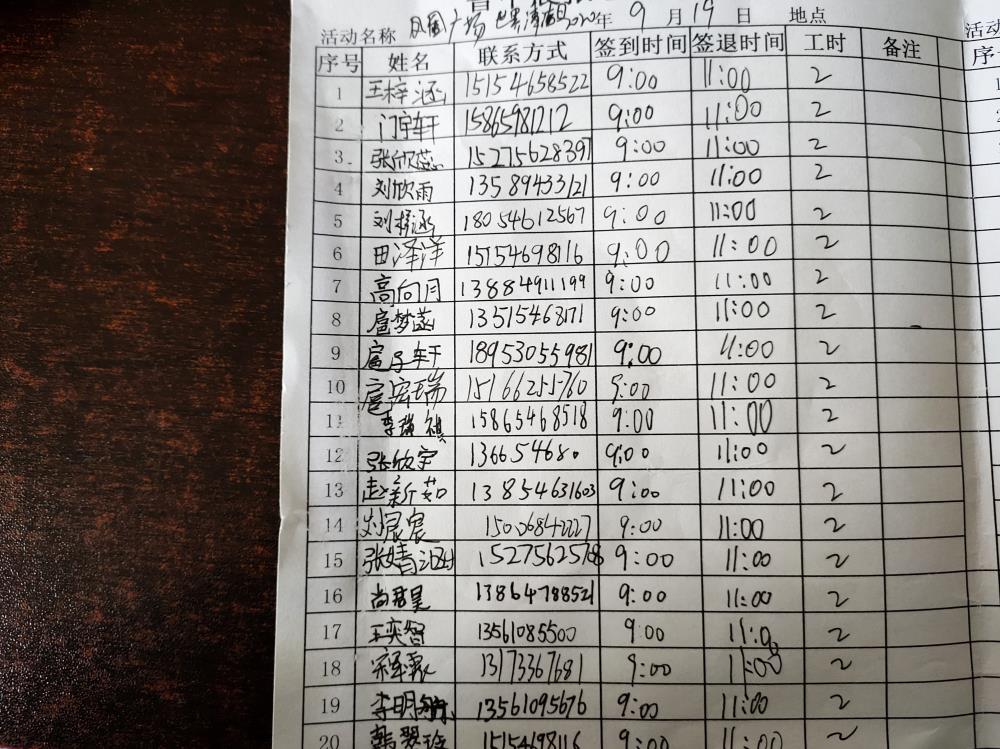 活动名称 凤凰广场 世界清洁日 2020年 9 月 19 日 地点 活动
序号 姓名 联系方式 签到时间 签退时间 工时 备注 序
1 王梓涵 15154658522 9:00 11:00 2
2 门宇轩 15865981212 9:00 11:00 2
3 张欣蕊 15275628397 9:00 11:00 2
4 刘欣雨 13589433121 9:00 11:00 2
5 刘梓涵 18054612567 9:00 11:00 2
6 田泽洋 15154698116 9:00 11:00 2
7 高向月 13884911199 9:00 11:00 2
8 扈梦菡 13515468171 9:00 11:00 2
9 扈子轩 18953055981 9:00 11:00 2
10 扈宏瑞 15166255760 9:00 11:00 2
11 李瑞祺 15865468518 9:00 11:00 2
12 张欣宇 136654680 9:00 11:00 2
13 赵新茹 13854631603 9:00 11:00 2
14 刘宸宸 9:00 11:00 2
15 张婧涵 9:00 11:00 2
16 尚君昊 13864788521 9:00 11:00 2
17 王奕智 13561085500 9:00 11:00 2
18 13173367681 9:00 11:00 2
19 李明 13561095676 9:00 11:00 2
20 韩翠玲 15154698116 9:00 11:00 2